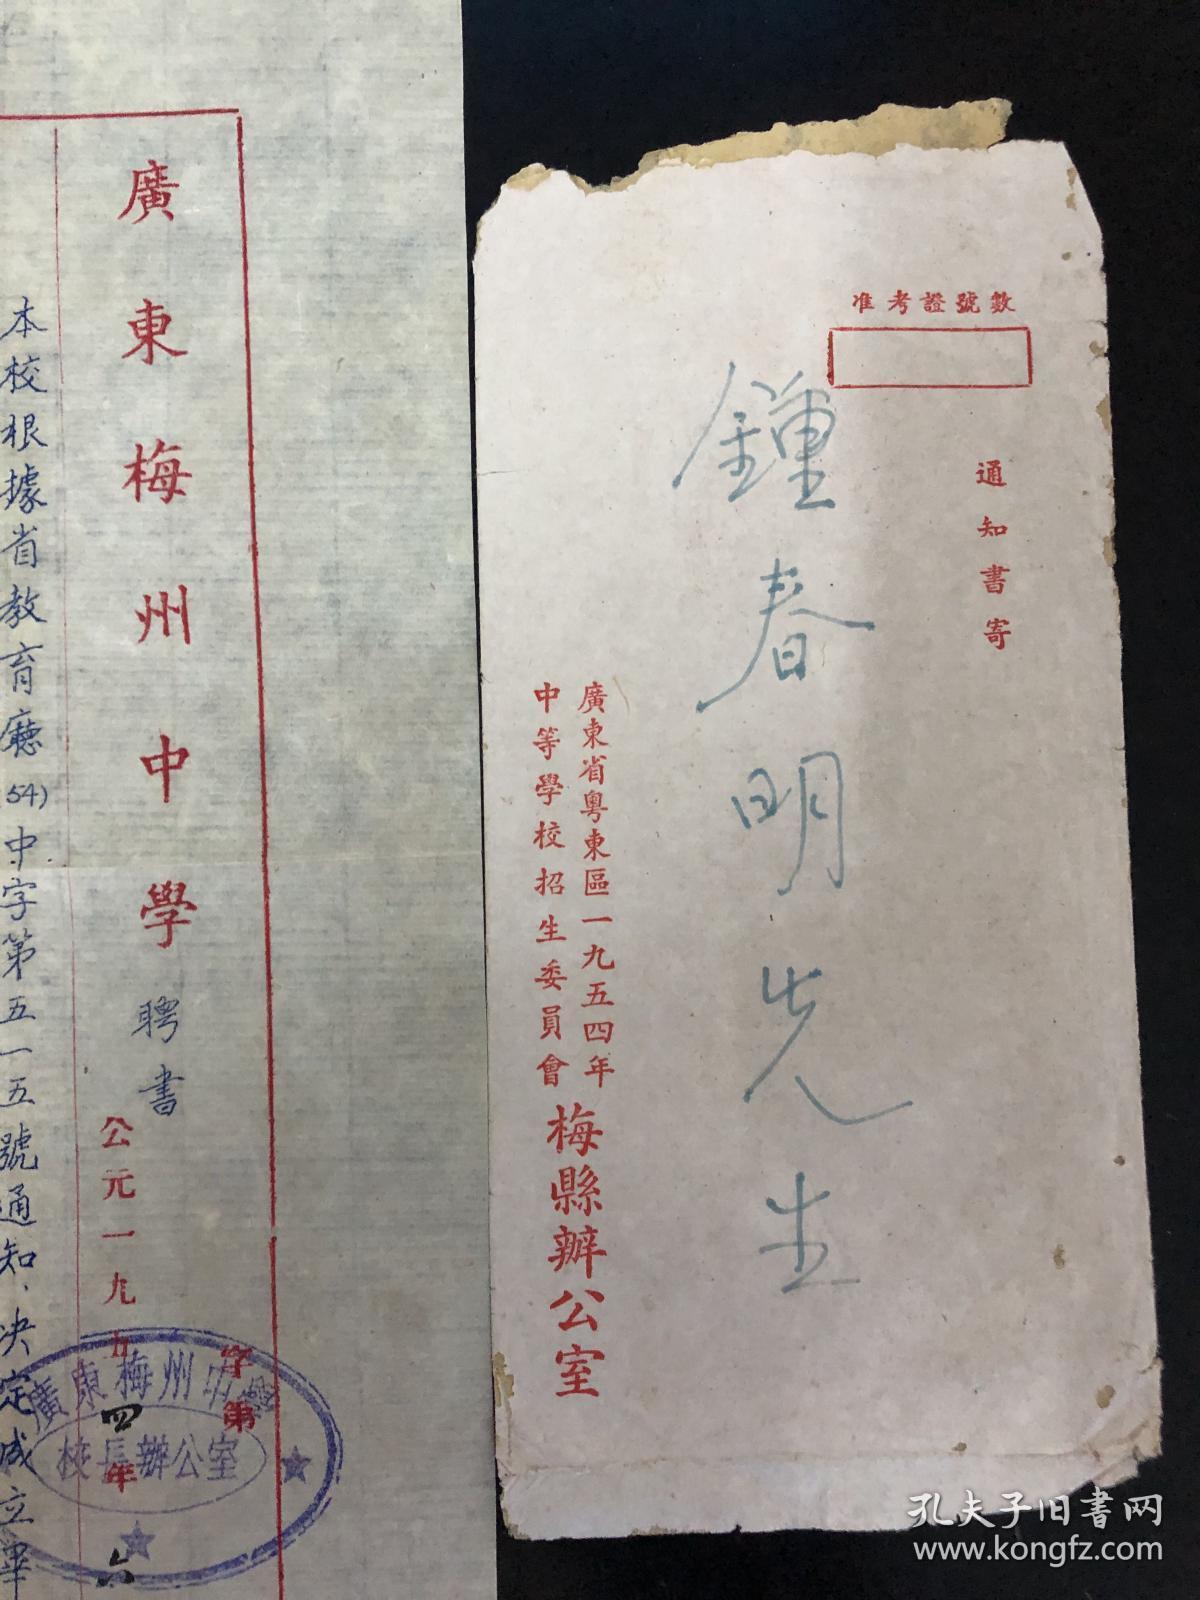 廣東梅州中學聘書
公元一九五四年六
字第
本校根據省教育廳54)中字第五一五號通知，决定成立畢
廣東梅州中學
校長辦公室
准考證號數
通知書寄
鍾春明先生
廣東省粵東區一九五四年
中等學校招生委員會
梅縣辦公室
孔夫子旧書网
www.kongfz.com